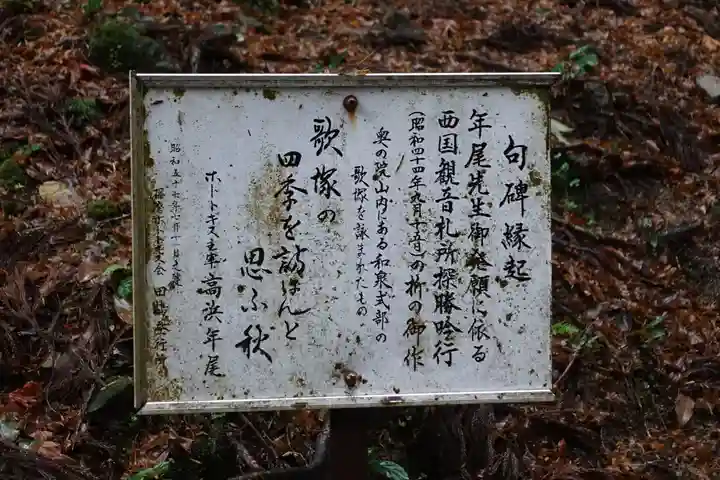 句碑縁起
年尾先生御発願に依る
西国観音札所探勝吟行
(昭和四十四年九月十一日)の折の御作
奥の院山内にある和泉式部の
歌塚を詠まれたもの
歌塚の
四季を訪はんと
思ふ秋
ホトトギス主宰高浜年尾
昭和五十七年七月十一日之建
ホトトギス会 田